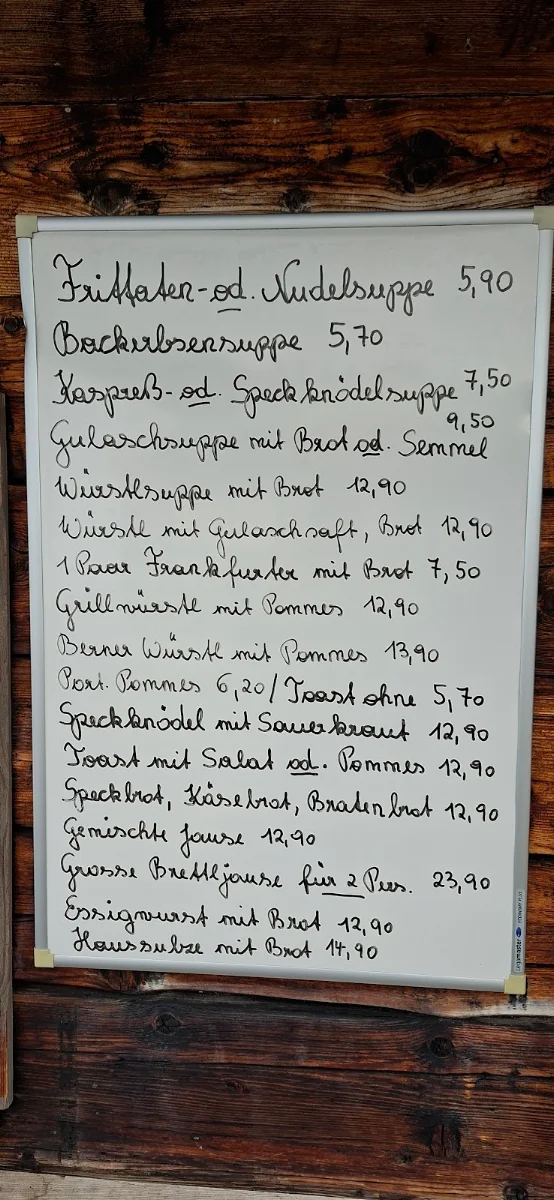 Frittaten- od. Nudelsuppe 5,90
Backerbsensuppe 5,70
Kaspreß- od. Speckknödelsuppe 7,50
Gulaschsuppe mit Brot od. Semmel 9,50
Würstlsuppe mit Brot 12,90
Würstl mit Gulaschsaft, Brot 12,90
1 Paar Frankfurter mit Brot 7,50
Grillwürstl mit Pommes 12,90
Berner Würstl mit Pommes 13,90
Port. Pommes 6,20 / Toast ohne 5,70
Speckknödel mit Sauerkraut 12,90
Toast mit Salat od. Pommes 12,90
Speckbrot, Käsebrot, Bratenbrot 12,90
Gemischte Jause 12,90
Grosse Brettljause für 2 Pers. 23,90
Essigwurst mit Brot 12,90
Haussulze mit Brot 14,90
Legamaster